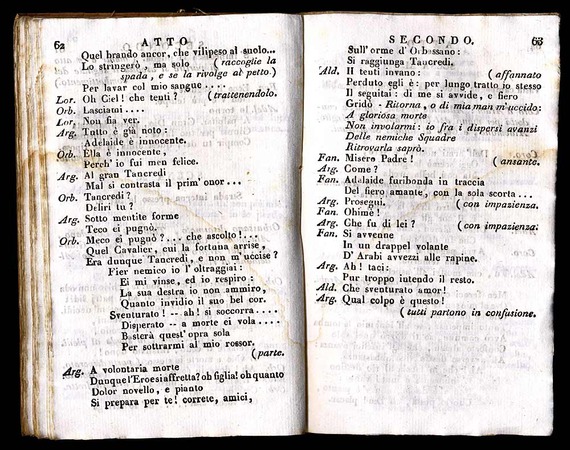 62 ATTO
Quel brando ancor, che vilipeso al suolo...
Lo stringerò, ma solo (raccoglie la
spada, e se la rivolge al petto.)
Per lavar col mio sangue ....
Lor. Oh Ciel! che tenti? (trattenendolo.
Orb. Lasciatmi ....
Lor. Non fia ver.
Arg. Tutto è già noto:
Adelaide è innocente.
Orb. Ella è innocente,
Perch' io fui men felice.
Arg. Al gran Tancredi
Mal si contrasta il prim' onor...
Orb. Tancredi?
Deliri tu?
Arg. Sotto mentite forme
Teco ei pugnò.
Orb. Meco ei pugnò?... che ascolto!...
Quel Cavalier, cui la fortuna arrise,
Era dunque Tancredi, e non m'uccise?
Fier nemico io l' oltraggiai:
Ei mi vinse, ed io respiro:
La sua destra io non ammiro,
Quanto invidio il suo bel cor.
Sventurato! -- ah! si soccorra ....
Disperato -- a morte ei vola ....
Basterà quest' opra sola
Per sottrarmi al mio rossor.
(parte.
Arg. A volontaria morte
Dunque l'Eroe si affretta? oh figlia! oh quanto
Dolor novello, e pianto
Si prepara per te! correte, amici,
SECONDO. 63
Sull' orme d' Orbassano:
Si raggiunga Tancredi.
Ald. Il tenti invano: (affannato
Perduto egli è: per lungo tratto io stesso
Il seguitai: di me si avvide, e fiero
Gridò - Ritorna, o di mia man m'uccido:
A gloriosa morte
Non involarmi: io fra i dispersi avanzi
Delle nemiche Squadre
Ritrovarla saprò.
Fan. Misero Padre! (ansante.
Arg. Come?
Fan. Adelaide furibonda in traccia
Del fiero amante, con la sola scorta ...
Arg. Prosegui. (con impazienza.
Fan. Ohimè!
Arg. Che fu di lei? (con impazienza.
Fan. Si avvenne
In un drappel volante
D' Arabi avvezzi alle rapine.
Arg. Ah! taci:
Pur troppo intendo il resto.
Ald. Che sventurato amor!
Arg. Qual colpo è questo!
(tutti partono in confusione.